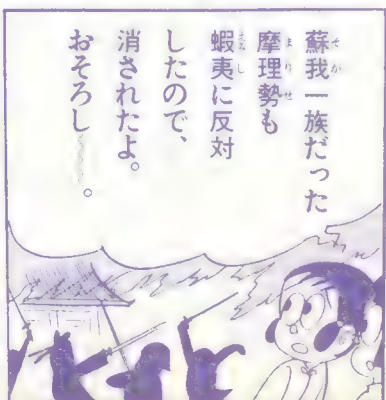 蘇我一族だった
摩理勢も
蝦夷に反対
したので、
消されたよ。
おそろし〜〜。